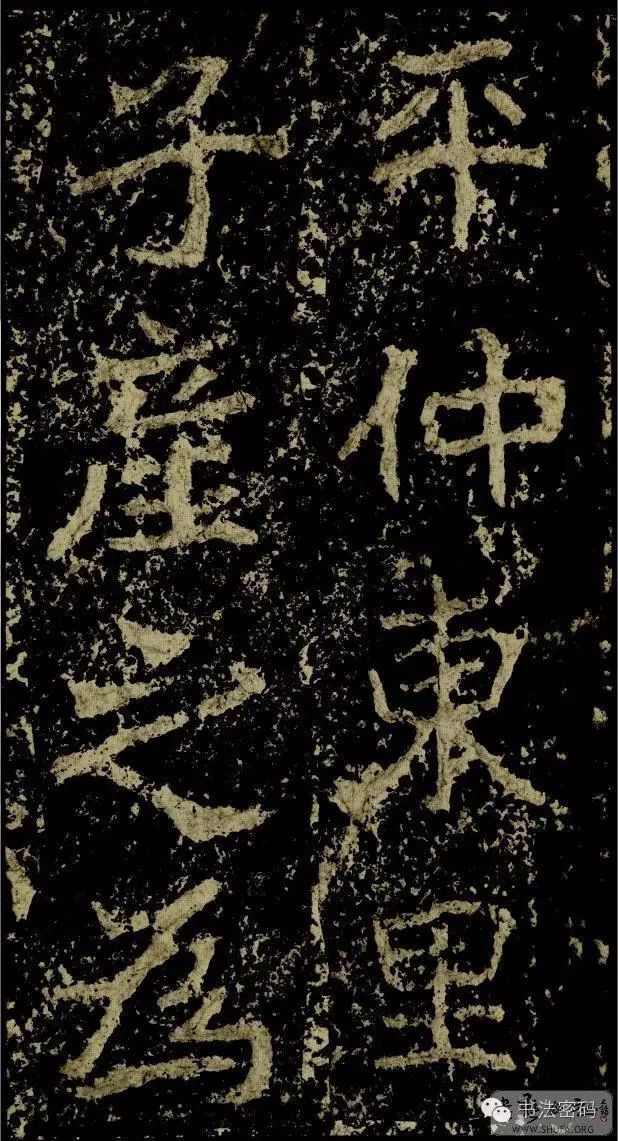 平仲東里
子產之為
书法密码
WWW.SHUFA.ORG